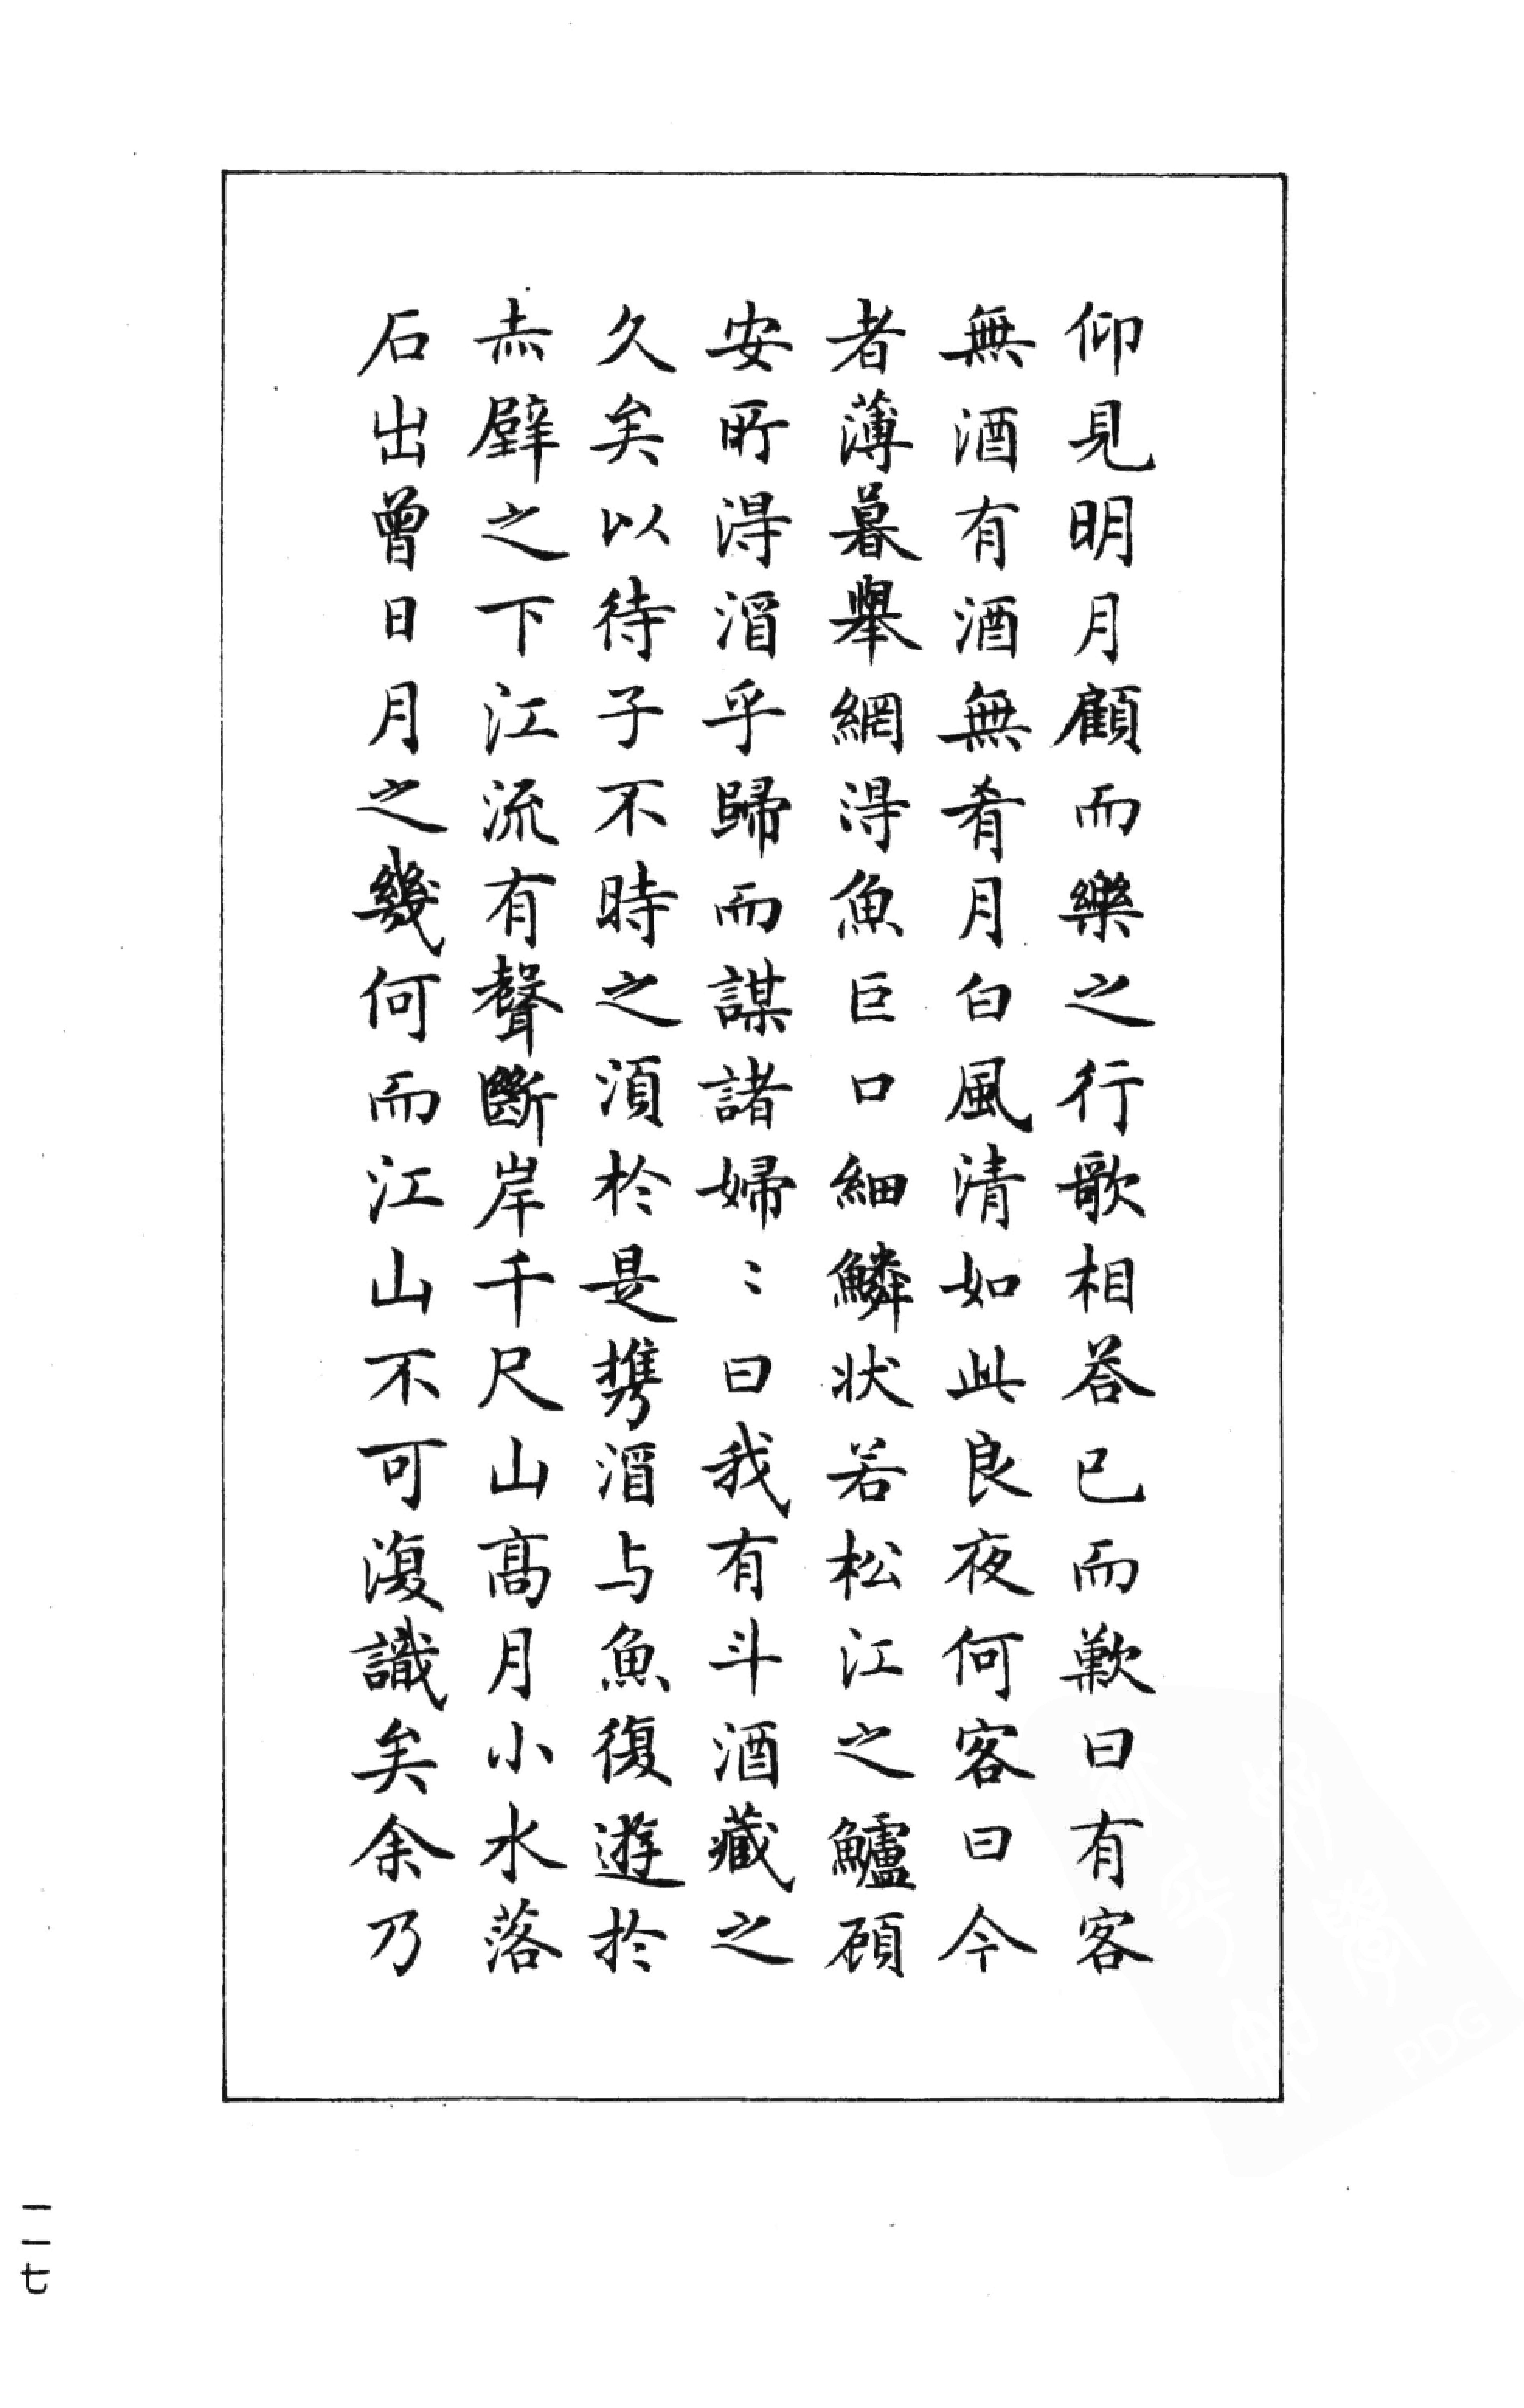 仰見明月顧而樂之行歌相荅已而歎曰有客
無酒有酒無肴月白風清如此良夜何客曰今
者薄暮舉網淂魚巨口細鱗状若松江之鱸顧
安所淂酒乎歸而謀諸婦〻曰我有斗酒藏之
久矣以待子不時之湏於是携酒与魚復遊於
赤壁之下江流有聲斷岸千尺山高月小水落
石出曾日月之幾何而江山不可復識矣余乃
一一七
PDG